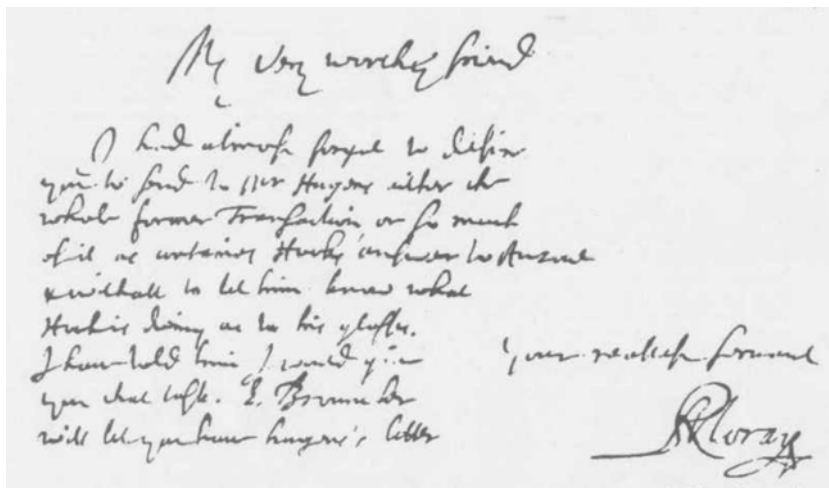 My very worthy friend
I had almost forgot to desire
you to send to Mr Hugens either the
whole former Transaction, or so much
of it as containes Hooks answer to Auzout
& withall to let him know what
Hook is doing as to his glasses.
I have told him I would give
you that task. L. Brouncker
will let you have hugens's letter
Your reallest servant
RMoray